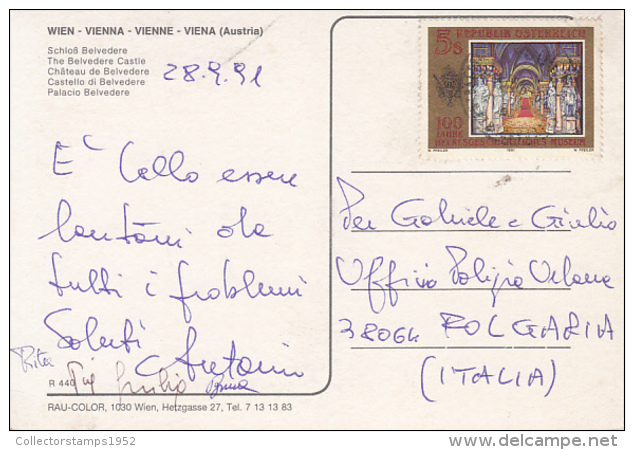 WIEN - VIENNA - VIENNE - VIENA (Austria)
Schloß Belvedere
The Belvedere Castle
Château de Belvedere
Castello di Belvedere
Palacio Belvedere
28.9.91
E' bello essere
lontani da
tutti i problemi
Saluti
Rita
Giulio
Anna
R 440
RAU-COLOR, 1030 Wien, Hetzgasse 27, Tel. 7 13 13 83
5s REPUBLIK ÖSTERREICH
100
JAHRE
HEERESGESCHICHTLICHES MUSEUM
1991
Per Gabriele e Giulio
Ufficio Polizia Urbana
38064 FOLGARIA
(ITALIA)
Collectorstamps1952
delcampe.net